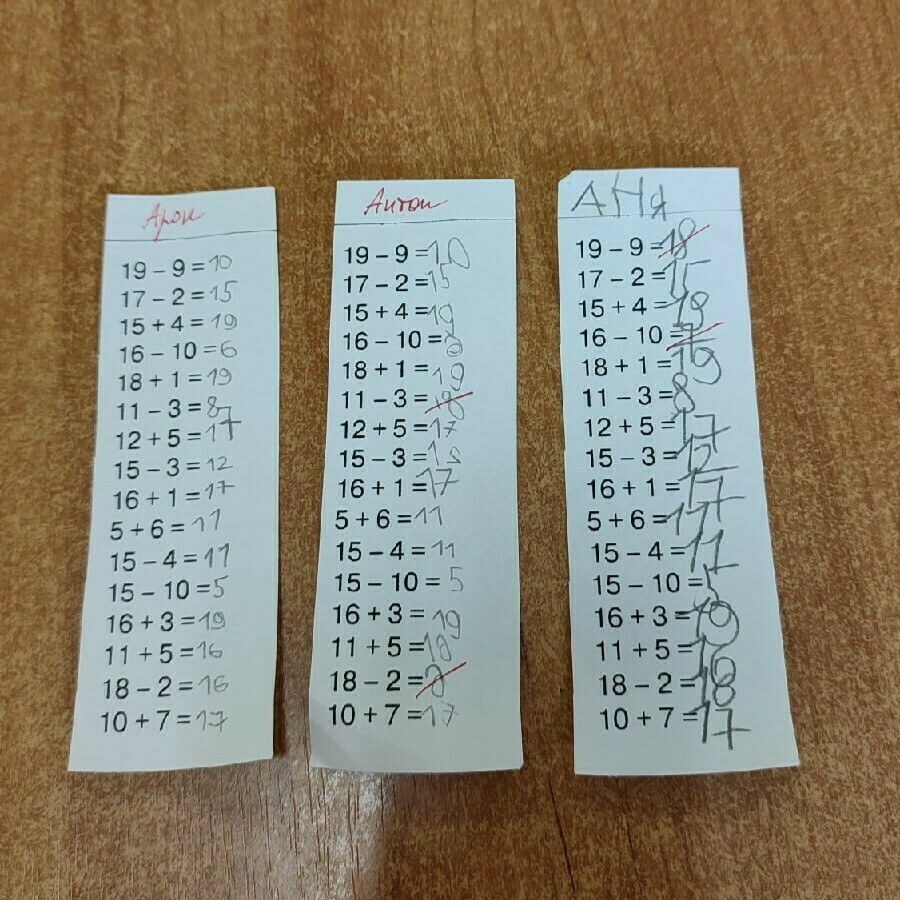 Арон
19 – 9 = 10
17 – 2 = 15
15 + 4 = 19
16 – 10 = 6
18 + 1 = 19
11 – 3 = 8
12 + 5 = 17
15 – 3 = 12
16 + 1 = 17
5 + 6 = 11
15 – 4 = 11
15 – 10 = 5
16 + 3 = 19
11 + 5 = 16
18 – 2 = 16
10 + 7 = 17
Антон
19 – 9 = 10
17 – 2 = 15
15 + 4 = 19
16 – 10 =
18 + 1 = 19
11 – 3 =
12 + 5 = 17
15 – 3 =
16 + 1 = 17
5 + 6 = 11
15 – 4 = 11
15 – 10 = 5
16 + 3 = 19
11 + 5 =
18 – 2 = 8
10 + 7 = 17
АНЯ
19 – 9 = 18
17 – 2 = 15
15 + 4 = 19
16 – 10 =
18 + 1 = 19
11 – 3 = 8
12 + 5 = 17
15 – 3 = 12
16 + 1 = 17
5 + 6 =
15 – 4 = 11
15 – 10 = 5
16 + 3 = 19
11 + 5 = 16
18 – 2 =
10 + 7 = 17